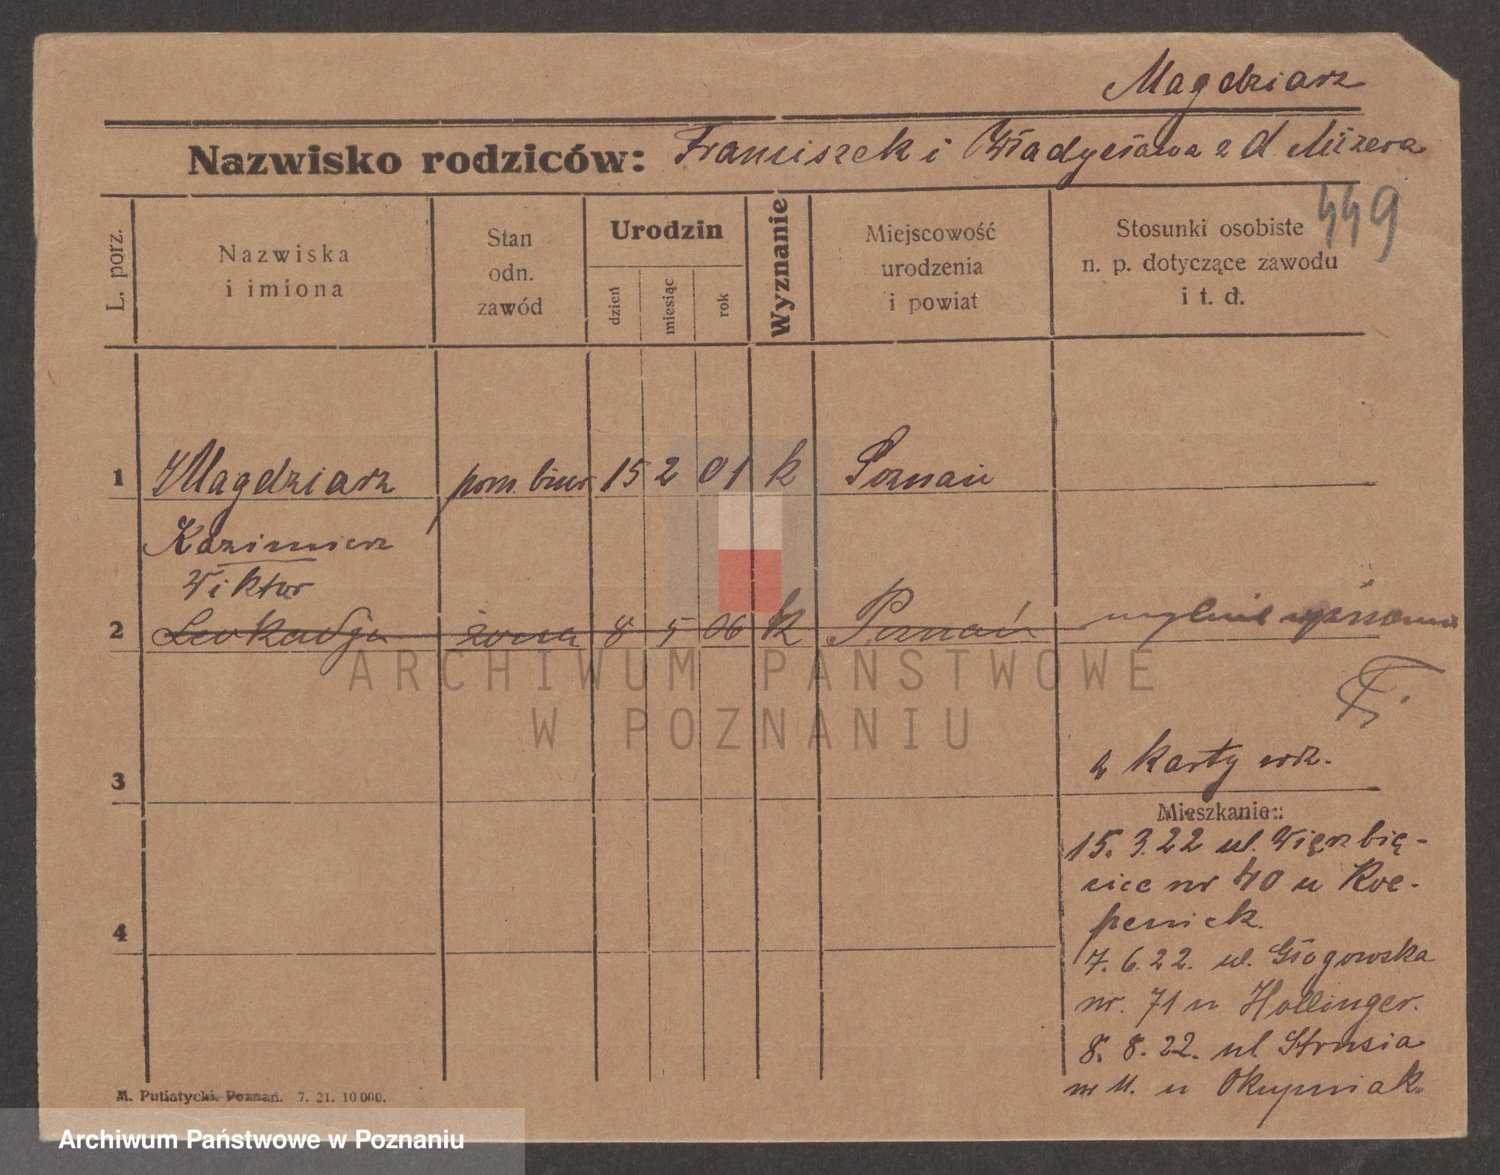 Magdziarz
Nazwisko rodziców: Franciszek i Władysława z d. Mizera
449
L. porz.
Nazwiska
i imiona
Stan
odn.
zawód
Urodzin
dzień
miesiąc
rok
Wyznanie
Miejscowość
urodzenia
i powiat
Stosunki osobiste
n. p. dotyczące zawodu
i t. d.
1 Magdziarz pom. biur. 15 2 01 k Poznań
Kazimierz
Wiktor
2 Leokadja żona 8 5 06 k Poznań mylnie wpisano
ARCHIWUM PAŃSTWOWE
W POZNANIU
2 karty wz.
3
Mieszkanie:
15.3.22 ul. Wierzbię-
cice nr 40 u Koe-
penick.
4
7.6.22. ul. Głogowska
nr. 71 u Hollinger.
8.8.22. ul Strusia
nr 11. u Okupniak.
M. Putiatycki. Poznań. 7. 21. 10 000.
Archiwum Państwowe w Poznaniu